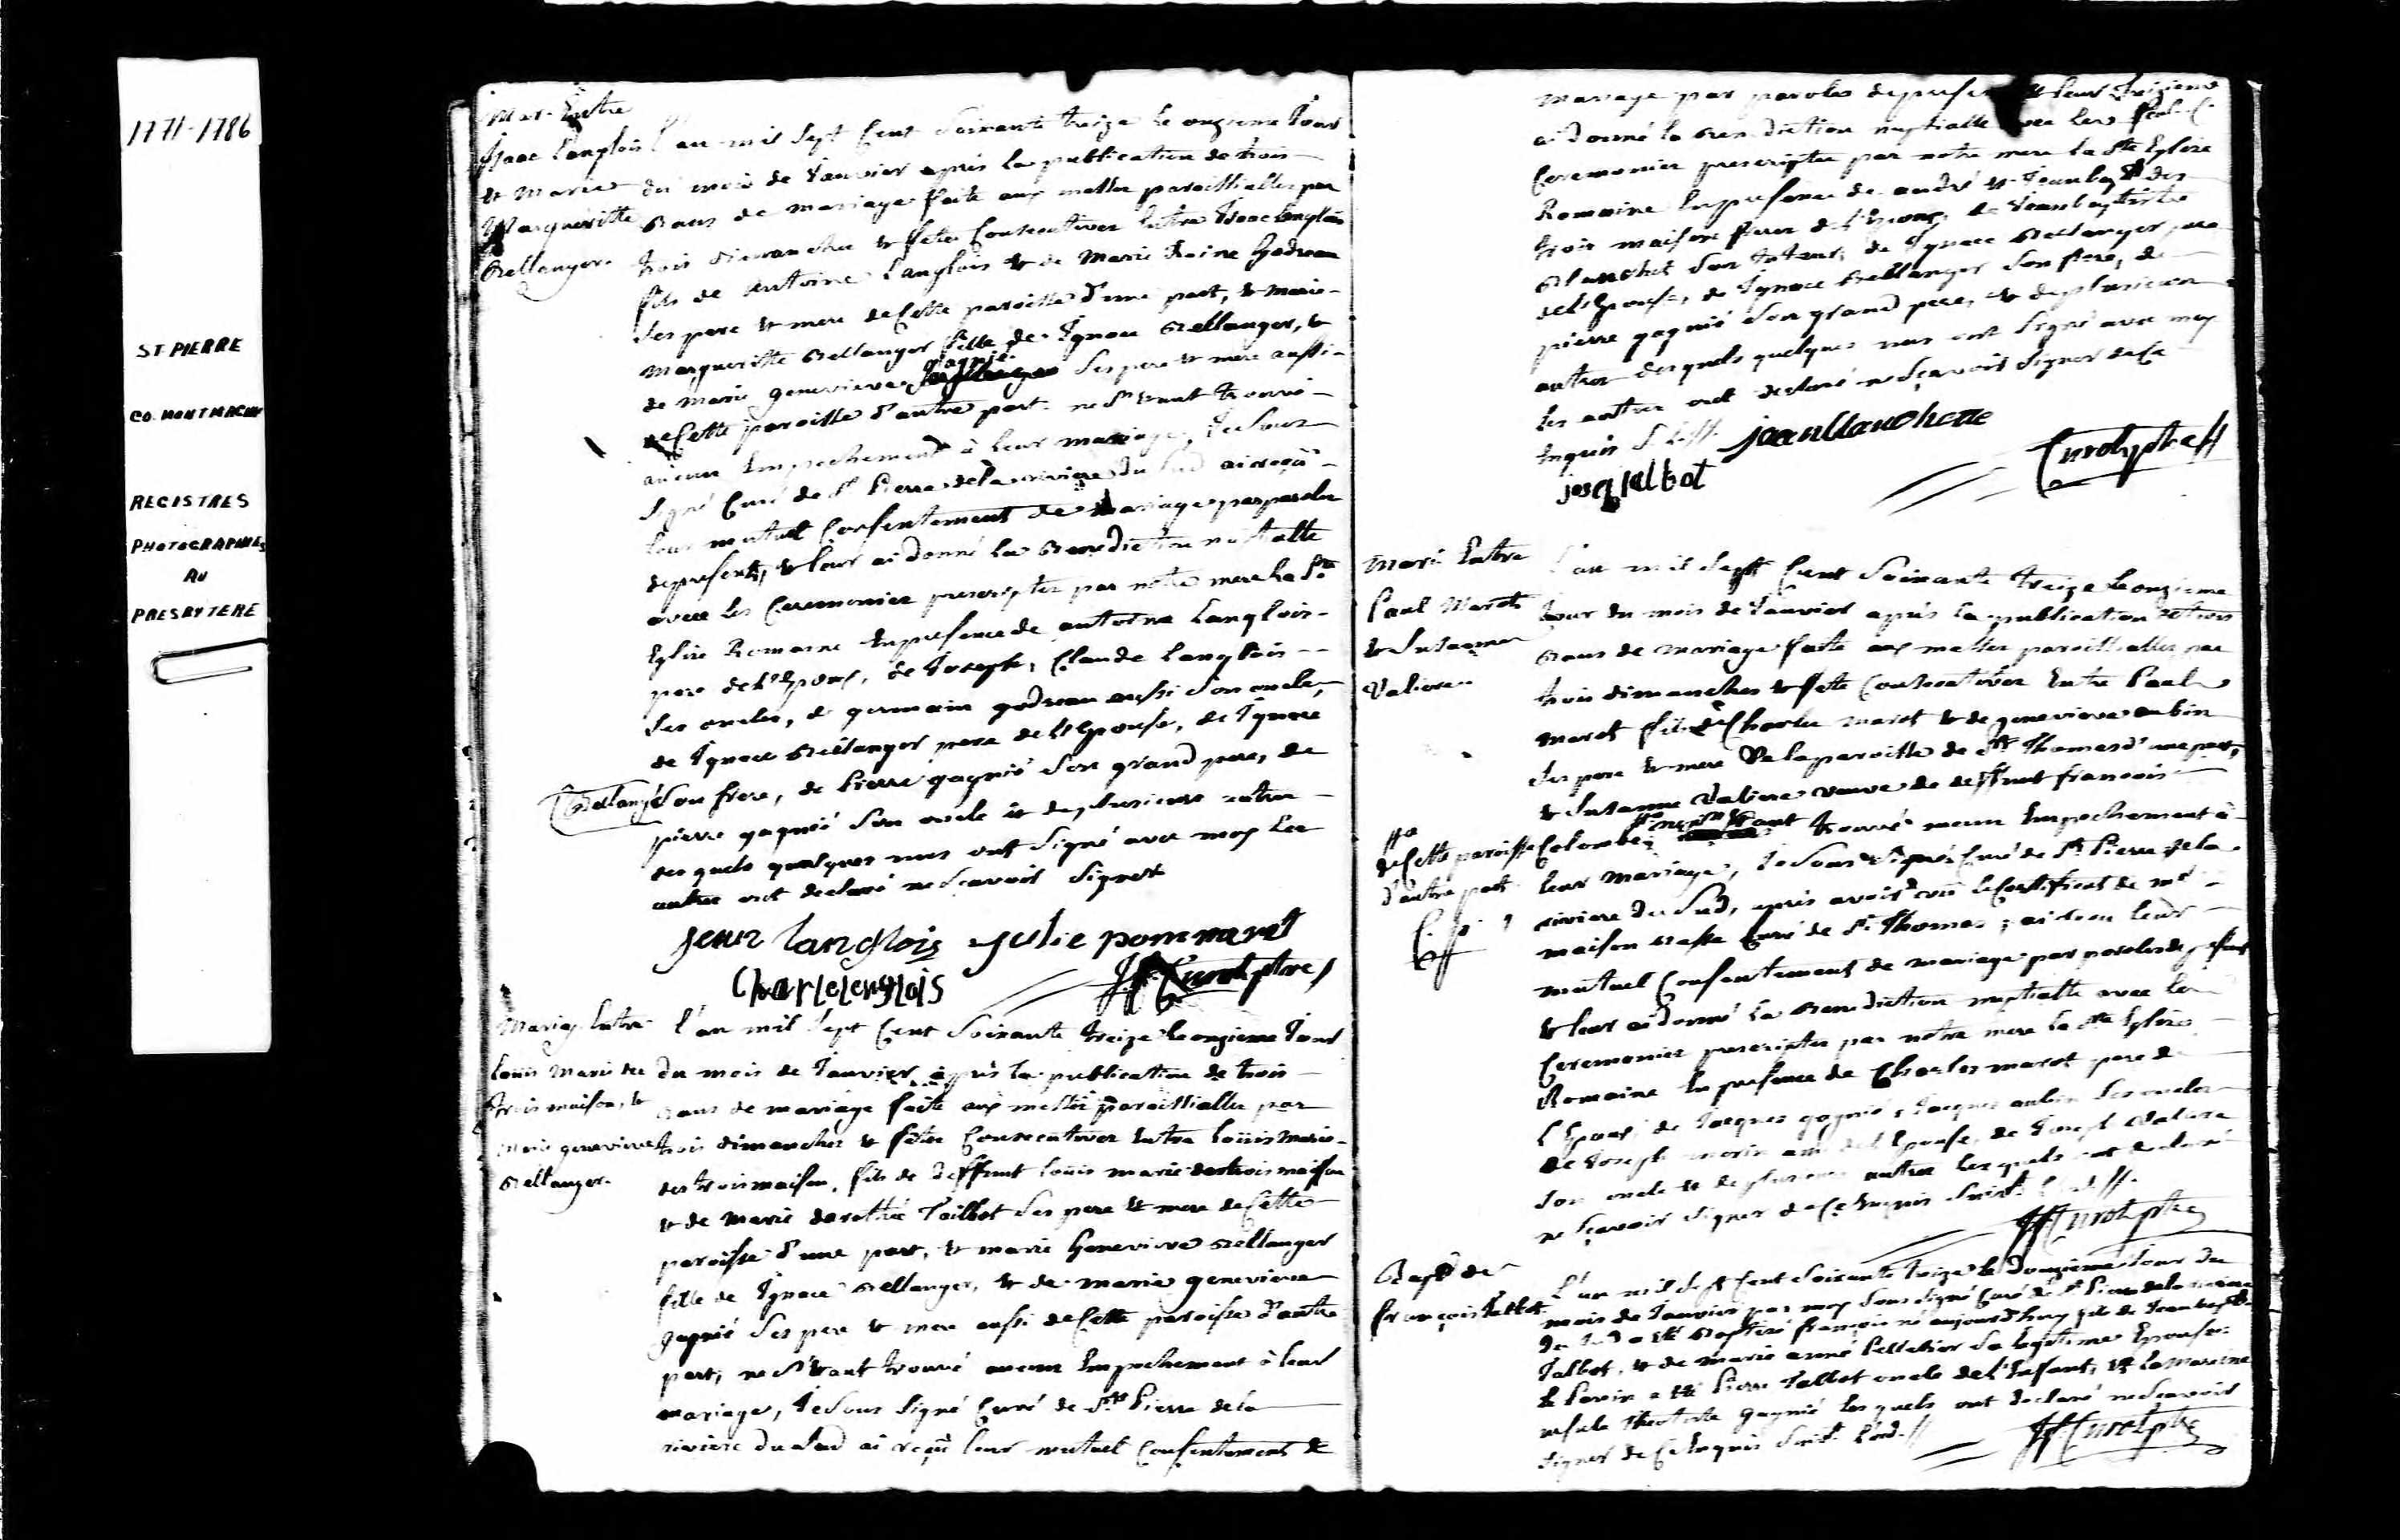 1771-1786
ST PIERRE
CO. MONTMAGNY
REGISTRES
PHOTOGRAPHIES
AU
PRESBYTERE
Mar. Entre
Isaac Langlois
& Marie
Marguéritte
Bellanger.
L'an mil sept Cent Soixante treize le onzieme Jour
du mois de Janvier après la publication de trois
Bans de mariage faite aux messes paroissialles par
trois dimanches & fetes Consecutives Entre Isaac langlois
fils de Antoine Langlois & de Marie Reine Godreau
Ses pere & mere de Cette paroisse d'une part, & Marie
Margueritte Bellanger fille de Ignace Bellanger, &
de Marie genevieve gagnié Ses pere & mere aussi
de Cette paroisse d'autre part ne s'etant trouvé
aucun Empechement à leur mariage, Je Sous
Signé Curé de St Pierre de la riviere du Sud ai reçû
leur mutuel Consentement de mariage par paroles
de present, & leur ai donné la Benediction nuptialle
avec les Ceremonies prescriptes par notre mere la Ste
Eglise Romaine En presence de antoine Langlois
pere de l'Epoux, de Joseph, Claude Langlois
Ses oncles, de germain godreau aussi Son oncle,
de Ignace Bellanger pere de l'Epouse, de Ignace
Bellangé Son frere, de Pierre gagnié Son grand pere, de
pierre gagnié Son oncle & de plusieurs autres
des quels quelques uns ont Signé avec moy les
autres ont declaré ne Sçavoir Signer
jean langlois julie pommaret
Charle lenglois
Curot ptre
Mariag. Entre
Louis Marie des
trois maison, &
Marie genevieve
Bellanger.
L'an mil Sept Cent Soixante treize le onzieme Jour
du mois de Janvier après la publication de trois
Bans de mariage faite aux messes paroissialles par
trois dimanches & fetes Consecutives Entre Loüis Marie
des trois maison, fils de deffunt Loüis marie des trois maison
& de Marie dorothée Talbot Ses pere & mere de Cette
paroisse d'une part, & marie Genevieve Bellanger
fille de Ignace Bellanger, & de marie genevieve
gagnié Ses pere & mere aussi de Cette paroisse d'autre
part, ne S'etant trouvé aucun Empechement à leur
mariage, Je Sous Signé Curé de St Pierre de la
riviere du Sud ai reçû leur mutuel Consentement de
mariage par paroles de present & leur
ai donné la Benediction nuptialle avec les
Ceremonies prescriptes par notre mere la Ste Eglise
Romaine En presence de andré & Jean bapt. des
trois maison frere de l'Epoux, de Jean baptiste
Blanchet Son tuteur, de Ignace Bellanger pere
de l'Epouse, de Ignace Bellanger Son frere, de
pierre gagnié Son grand pere, & de plusieurs
autres desquels quelques uns ont Signé avec moy
les autres ont declaré ne Sçavoir Signer de Ce
Enquis
jean blanchette
josq talbot
Curot ptre
Mari. Entre
Paul Marot
& Susanne
Valiere
L'an mil Sept Cent Soixante treize le onzieme
Jour du mois de Janvier après la publication de trois
Bans de mariage faite aux messes paroissialles par
trois dimanches & fete Consecutives Entre Paul
Marot fils de Charles Marot & de genevieve aubin
Ses pere & mere de la paroisse de St Thomas d'une part,
& Susanne Valiere veuve de deffunt francois
de Cette paroisse
d'autre part
Colombe, ne S'etant trouvé aucun Empechement à
leur Mariage, Je Sous Signé Curé de St Pierre de la
riviere du Sud, après avoir vû le Certificat de mr
maison Basse Curé de St Thomas, ai reçu leur
mutuel Consentement de mariage par paroles de present
& leur ai donné la Benediction nuptialle avec les
Ceremonies prescriptes par notre mere la Ste Eglise
Romaine En presence de Charles marot pere de
l'Epoux, de Jacques gagnié, Jacques aubin Ses oncles
de Joseph morin ami de l'Epouse, de Joseph Valiere
Son oncle & de plusieurs autres lesquels ont declaré
ne Sçavoir Signer de Ce Enquis Suivt. l'ord.
Curot ptre
Bapt de
françois Talbot
L'an mil Sept Cent Soixante treize le Douzieme Jour du
mois de Janvier par moy Sous Signé Curé de St Pierre de la riviere
du Sud a été Baptisé françois né aujourd'huy fils de Jean baptiste
Talbot, & de marie anne Pelletier Sa legitime Epouse.
le Parein a été Pierre Talbot oncle de l'Enfant, & La Mareine
Theotiste gagnié lesquels ont declaré ne Sçavoir
Signer de Ce Enquis Suivt. l'ord.
Curot ptre